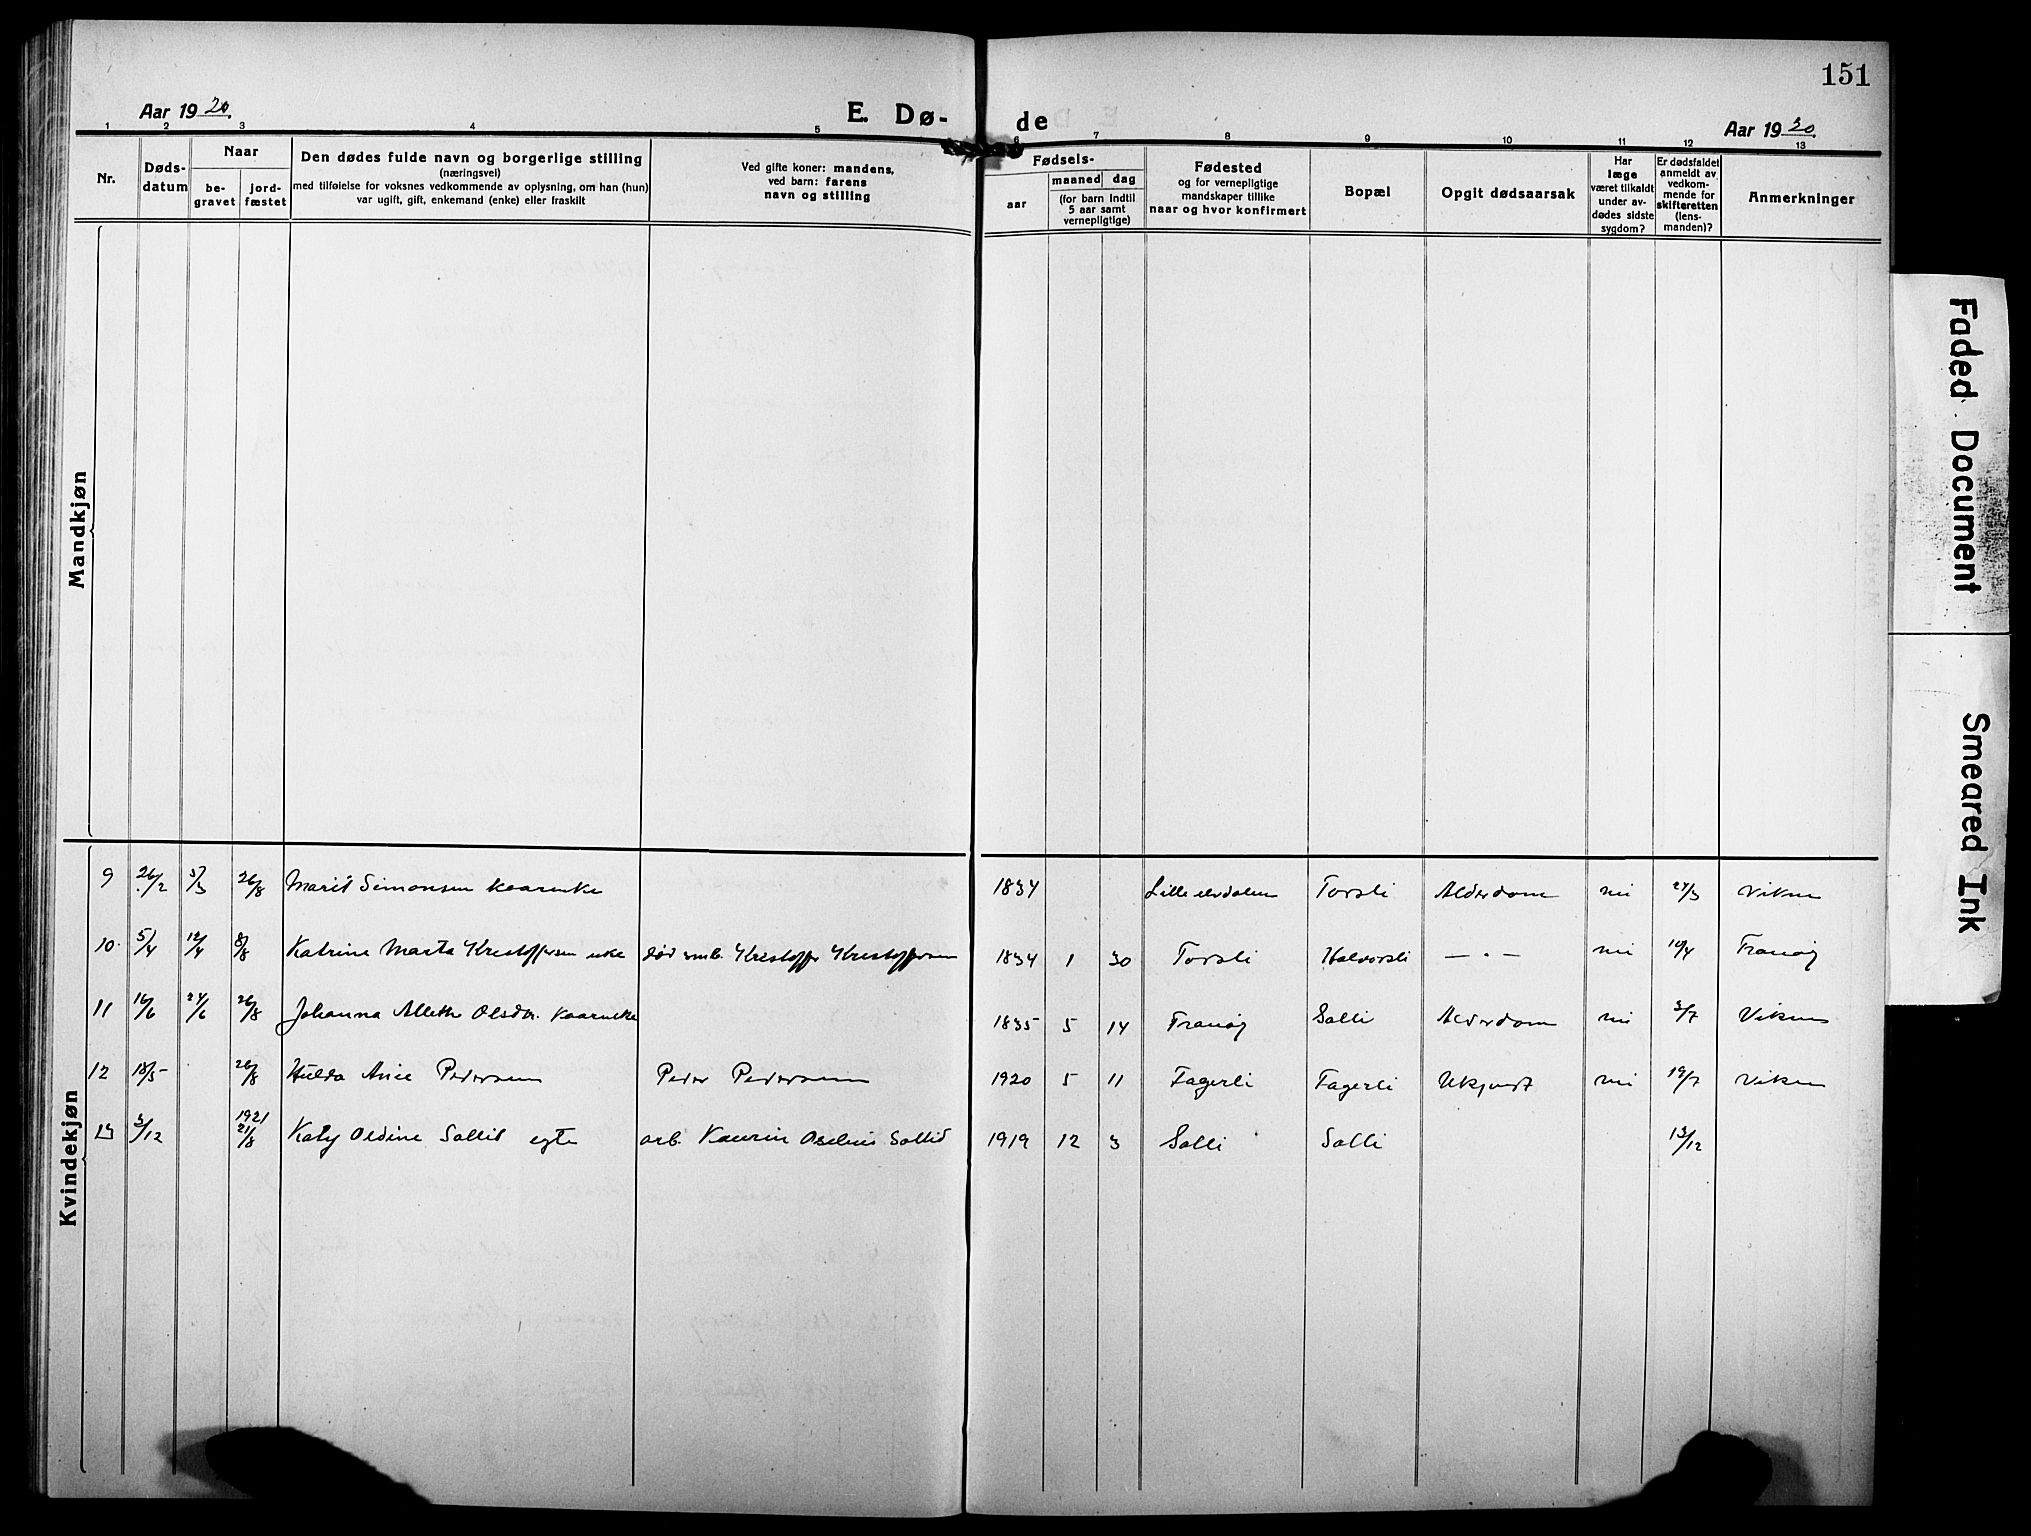 151
Aar 1920.
E. Dø-
de
Aar 1920.
1 2 3 4 5 6 7 8 9 10 11 12 13
Nr.
Døds-
datum
Naar
be-
gravet
jord-
fæstet
Den dødes fulde navn og borgerlige stilling
(næringsvei)
med tilføielse for voksnes vedkommende av oplysning, om han (hun)
var ugift, gift, enkemand (enke) eller fraskilt
Ved gifte koner: mandens,
ved barn: farens
navn og stilling
Fødsels-
aar
maaned dag
(for barn indtil
5 aar samt
vernepligtige)
Fødested
og for vernepligtige
mandskaper tillike
naar og hvor konfirmert
Bopæl
Opgit dødsaarsak
Har
læge
været tilkaldt
under av-
dødes sidste
sygdom?
Er dødsfaldet
anmeldt av
vedkom-
mende for
skifteretten
(lens-
manden)?
Anmerkninger
Mandkjøn
Kvindekjøn
9 26/2 5/3 26/8 Marit Simonsen kaarenke 1834 Lille elvdalen Torsli Alderdom nei 27/3 Viken
10 5/4 12/4 8/8 Katrine Marta Kristoffersen enke død emb. Kristoffer Kristoffersen 1834 1 30 Torsli Halvorsli — " — nei 19/4 Tranøy
11 16/6 24/6 26/8 Johanna Allette Olsdtr. kaarenke 1835 5 14 Tranøy Salli Alderdom nei 3/7 Viken
12 18/5 26/8 Hulda Peder Pedersen 1920 5 11 Fagerli Fagerli Ukjendt nei 19/7 Viken
13 3/12 1921 21/8 Katy Oldine Sallid egte arb. Kaurin Oselius Sallid 1919 12 3 Salli Salli 13/12
Faded Document
Smeared Ink